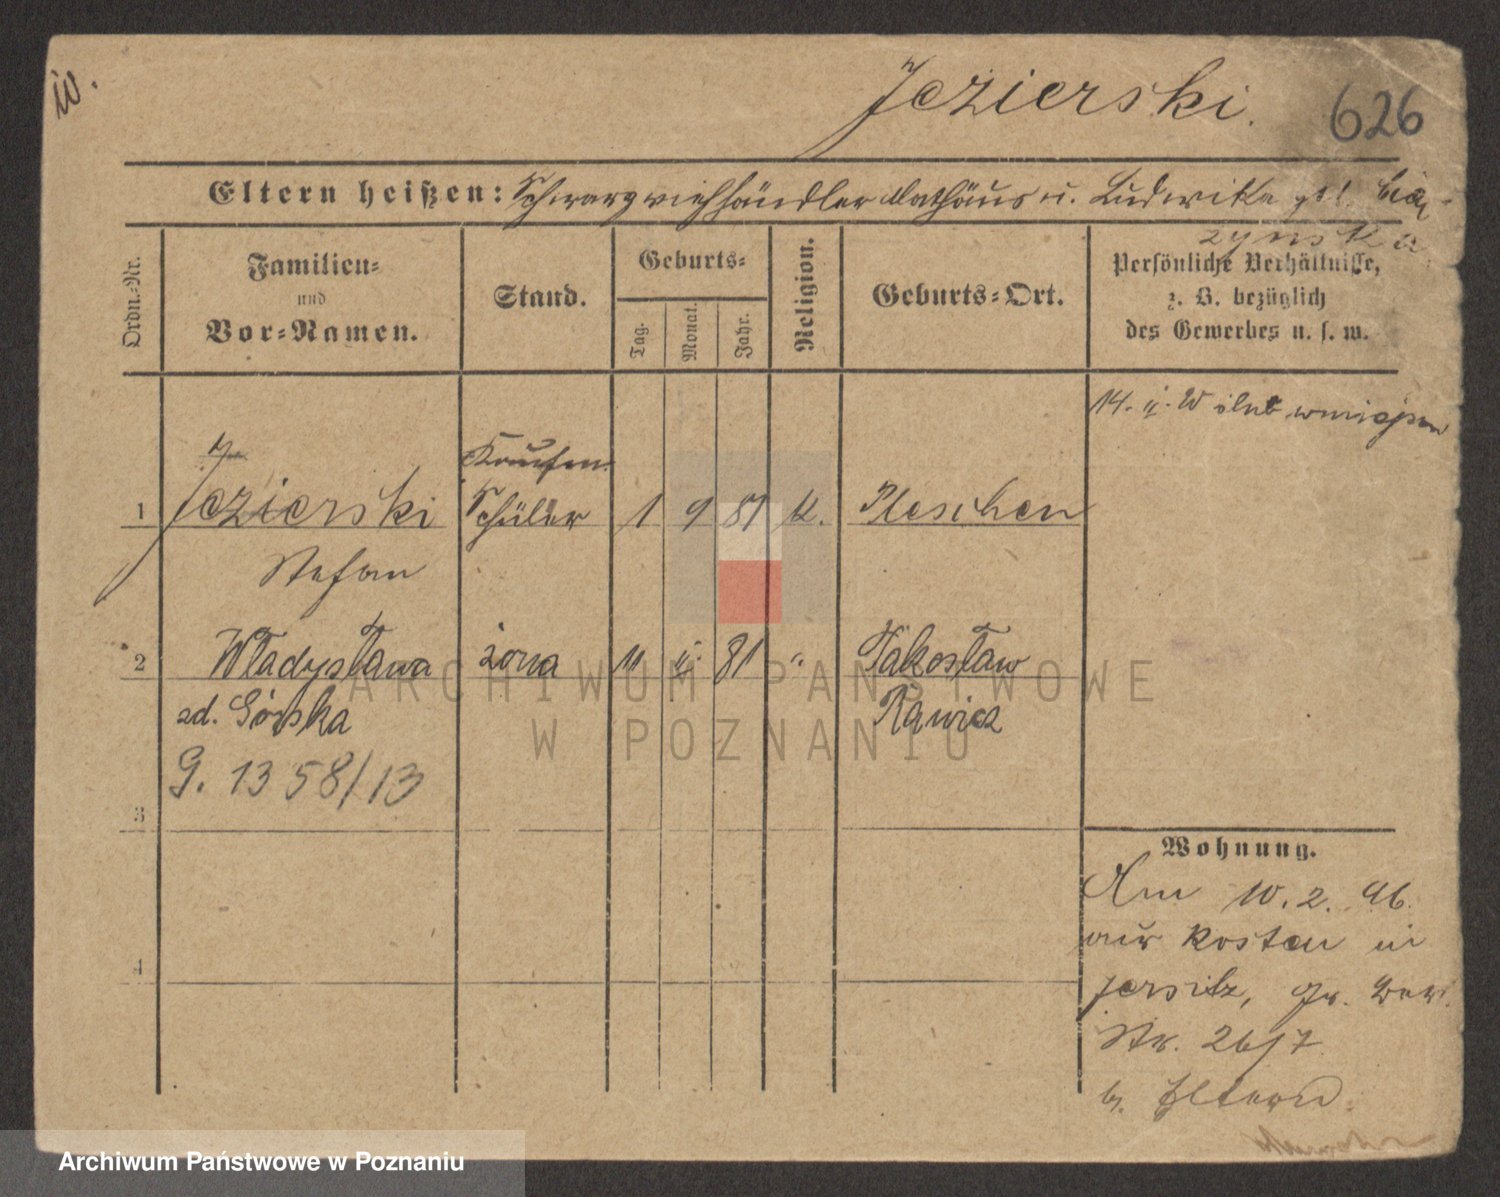 iv.
Jezierski.
626
Eltern heißen: Schwarzviehhändler Mathäus u. Ludwika geb.
zynska
Ordn.-Nr.
Familien- und Vor-Namen.
Stand.
Geburts-
Tag.
Monat.
Jahr.
Religion.
Geburts-Ort.
Persönliche Verhältnisse, z. B. bezüglich des Gewerbes u. s. w.
14. II. W ślub
Kaufm.
1 Jezierski Schüler 1 9 81 k. Pleschen
Stefan
2 Władysława żona 11 II. 81 " Pakosław
zd. Górska Rawicz
G. 1358/13
3
4
Wohnung.
Am 10. 2. 96.
aus Kosten in
Jersitz, Gr. Berl.
Str. 26/7
b. Eltern
ARCHIWUM PAŃSTWOWE
W POZNANIU
Archiwum Państwowe w Poznaniu